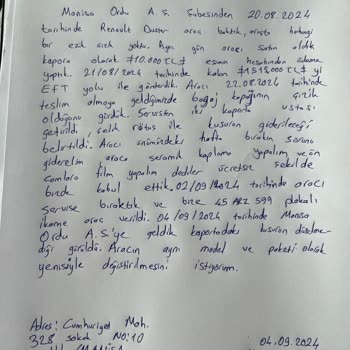 Manisa Ordu A.Ş. Şubesinden 20.08.2024
tarihinde Renault Duster araç baktık, araçta herhangi
bir ezik çizik yoktu. Aynı gün aracı satın aldık
kapora olarak ₺10.000TL esnan hesabından ödeme
yaptık. 21/08/2024 tarihinde kalan ₺1515000TL yi
EFT yolu ile gönderdik. Aracı 22.08.2024 tarihinde
teslim almaya geldiğimizde bagaj kapağının çizik
olduğunu gördük. Servisten iki kaporta ustası
getirildi, çelik rötuş ile kusurun giderileceği
belirtildi. Aracı önümüzdeki hafta bırakın sorunu
giderelim araca seramik kaplama yapalım ve ön
camlara film yapalım dediler ücretsiz şekilde
bizde kabul ettik. 02/09/2024 tarihinde aracı
servise bıraktık ve bize 45 599 plakalı
ikame araç verildi. 04/09/2024 tarihinde Manisa
Ordu A.Ş.'ye geldik kaportadaki kusurun düzelme-
diği görüldü. Aracın aynı model ve paketi olarak
yenisiyle değiştirilmesini istiyorum.
Adres: Cumhuriyet Mah.
328 sokak NO:10
04.09.2024
MANİSA